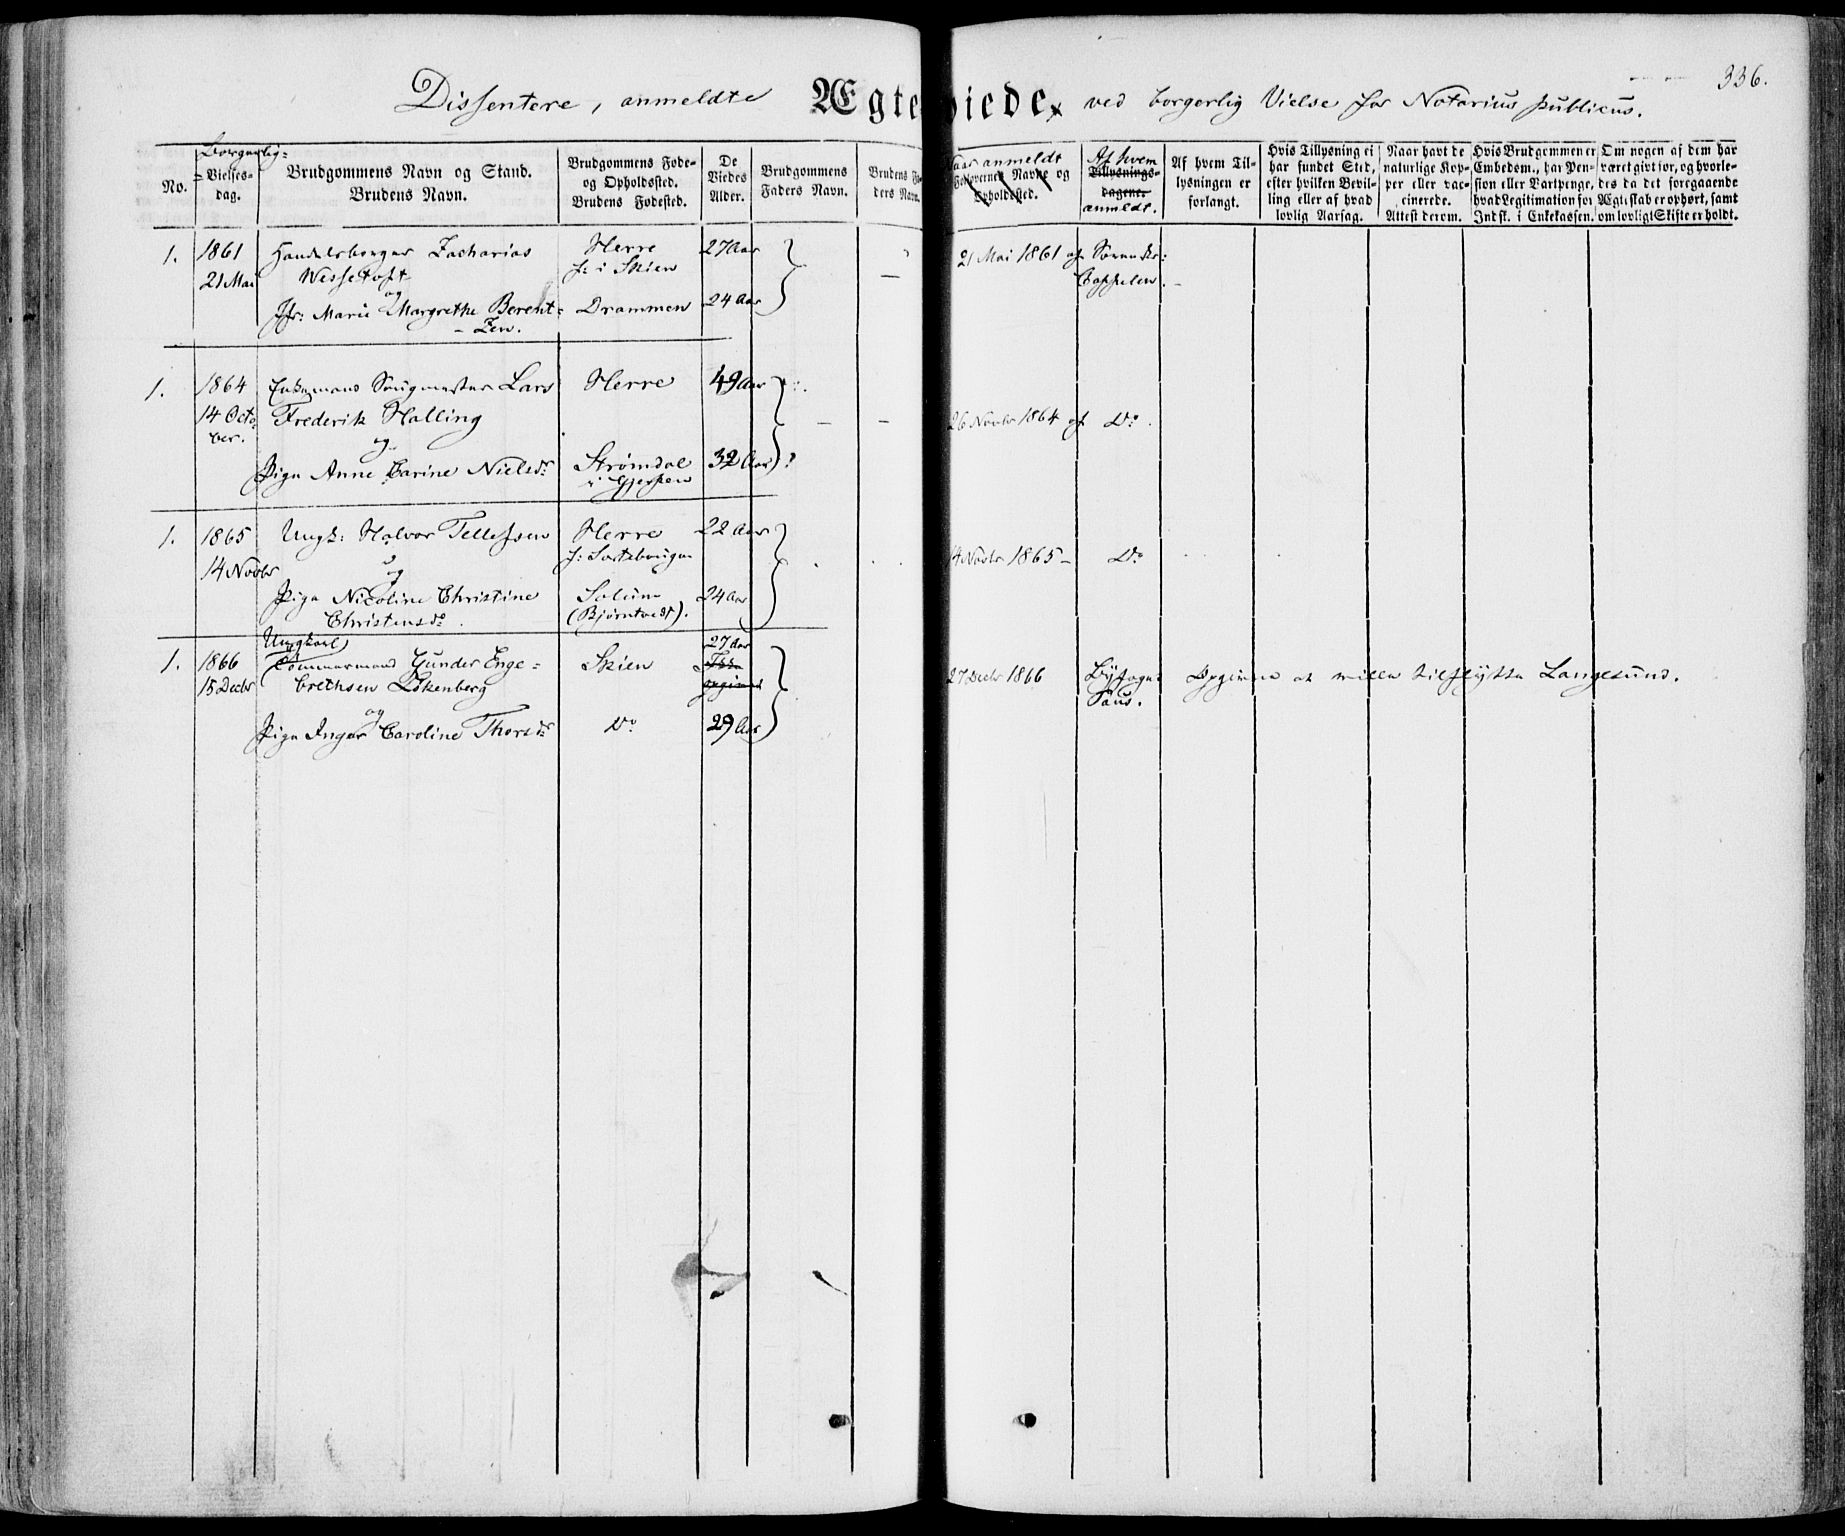 336.
Dissentere, anmeldte Ægteviede, ved borgerlig Vielse for Notarius publicus.
No.
Borgerlig=
Vielses-
dag.
Brudgommens Navn og Stand.
Brudens Navn.
Brudgommens Føde-
og Opholdssted.
Brudens Fødested.
De
Viedes
Alder.
Brudgommens
Faders Navn.
Brudens Fa-
ders Navn.
Naar anmeldt
Forlovernes Navne og
Opholdssted.
Af hvem
Tillysnings-
dagene.
anmeldt.
Af hvem Til-
lysningen er
forlangt.
Hvis Tillysning ei
har fundet Sted,
efter hvilken Bevil-
ling eller af hvad
lovlig Aarsag.
Naar havt de
naturlige Kop-
per eller vac-
cinerede.
Attest derom.
Hvis Brudgommen er
Embedsm., har Pen-
sion eller Vartpenge,
hvad Legitimation for
Indsk. i Enkekassen.
Om nogen af dem har
været gift før, og hvorle-
des da det foregaaende
Ægteskab er ophørt, samt
om lovligt Skifte er holdt.
1. 1861 Handelsborger Zacharias Herre 27 Aar 21 Mai 1861 af
21 Mai Wessetoft f: i Skien Cappelen.
og
Jfr: Marie Margrethe Berent= Drammen 24 Aar
-Zen.
1. 1864 Enkemand Lars Herre 49 Aar
14 Octo- Frederik Halling 26 Novbr 1864 af Do.
ber. og
Pige Anne Carine Nielsdr Strømdal 32 Aar
i Gjerpen
1. 1865 Ungk: Halvor Tellefsen Herre 22 Aar 14 Novbr 1865 - Do
14 Novbr og
Pige Nicoline Christine Solum 24 Aar
Christensdr. (Bjørntvedt).
Ungkarl 27 Aar
1. 1866 Tømmermand Gunder Enge= Skien 27 Decbr 1866 Byfoged Opgivne at ville tilflytte Langesund.
15 Decbr brethsen Løkenberg opgivet Paus.
og
Pige Inger Caroline Thorsdr Do 29 Aar